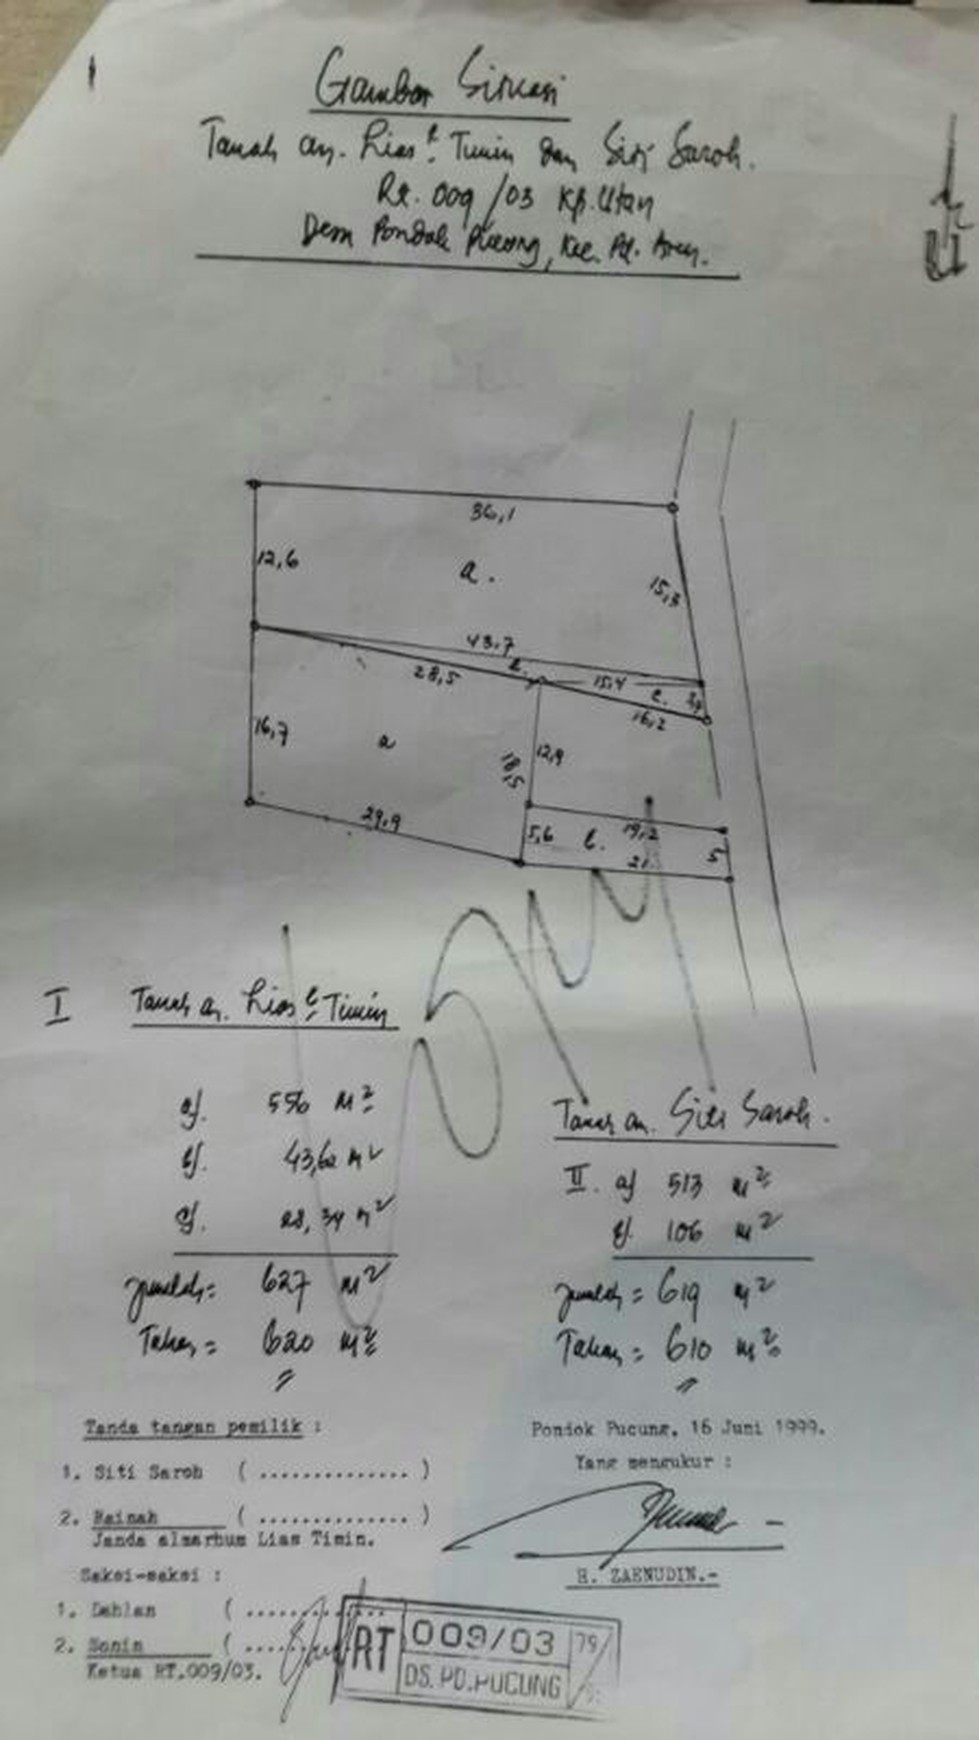 Gambar Situasi
Tanah an. Lias b. Timin dan Siti Saroh.
Rt. 009/03 Kp. Utan
Desa Pondok Pucung, Kec. Pd. Aren.
U
36,1
12,6
a.
15,3
43,7
28,5
15,4
c.
16,2
16,7
a
12,9
18,5
29,9
5,6
b.
19,2
5
21
I Tanah an. Lias b. Timin
a/. 556 M²
b/. 43,62 M²
c/. 28,34 M²
Jumlah = 627 M²
= 620 M²
Tanah an. Siti Saroh.
II. a/ 513 M²
b/. 106 M²
Jumlah = 619 M²
= 610 M²
Tanda tangan pemilik :
1. Siti Saroh ( .............. )
2. Rainah ( .............. )
Janda almarhum Lias Timin.
Saksi-saksi :
1. Dahlan ( ..............
2. Sonin ( ......
Ketua RT.009/03.
Pondok Pucung, 16 Juni 1999.
Yang mengukur :
H. ZAENUDIN.-
RT 009/03
DS. PD.PUCUNG